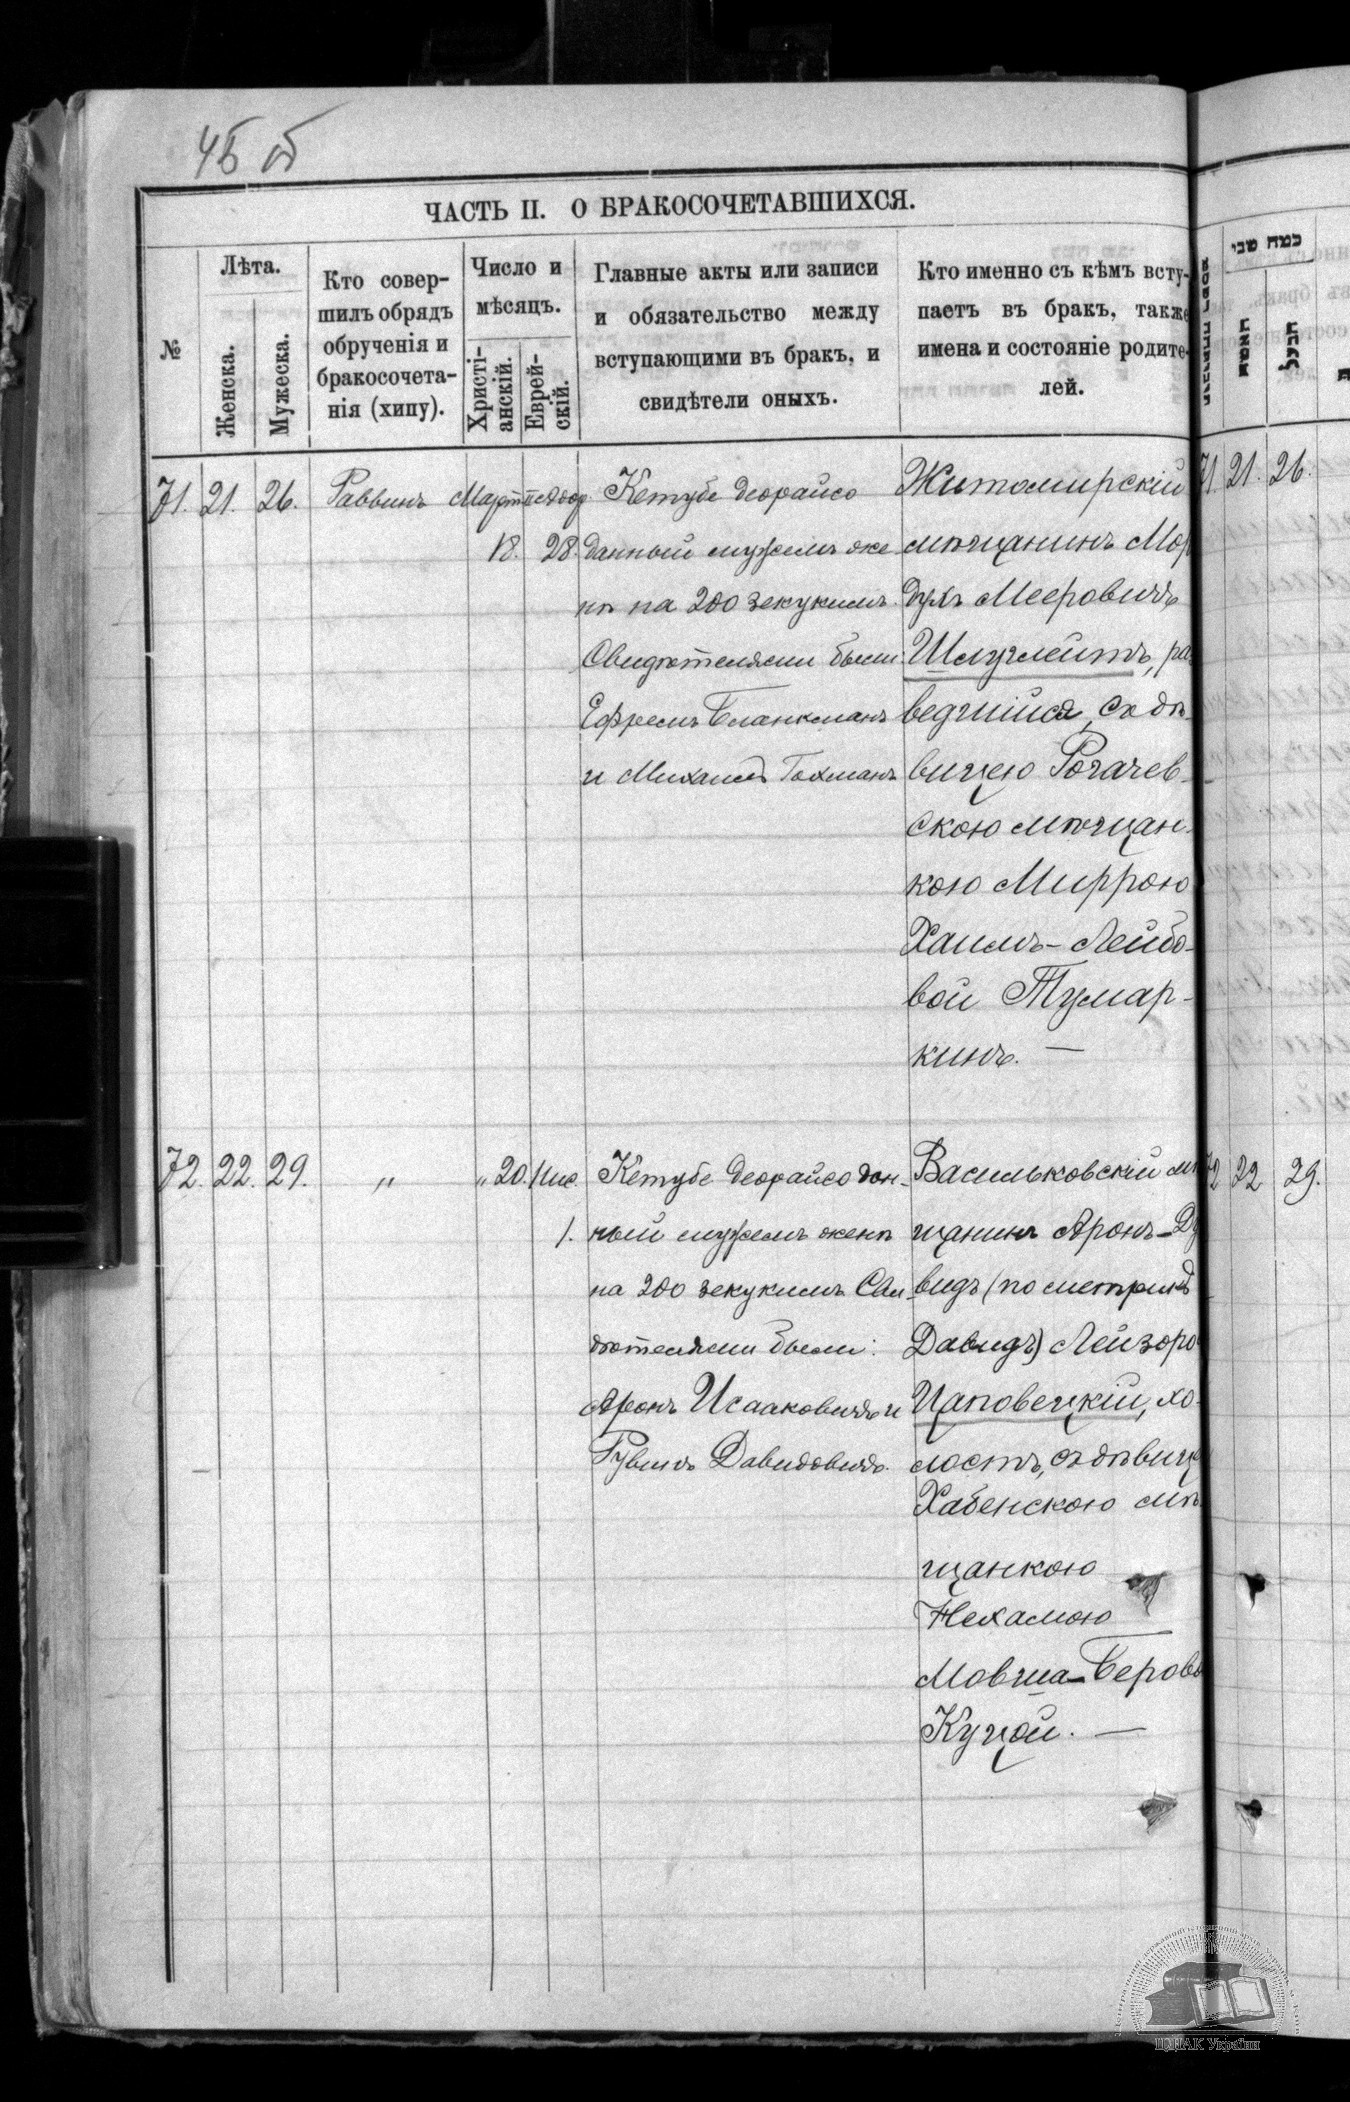 45 об
ЧАСТЬ II. О БРАКОСОЧЕТАВШИХСЯ.
№
Лѣта.
Женска.
Мужеска.
Кто совер-
шилъ обрядъ
обрученія и
бракосочета-
нія (хипу).
Число и
мѣсяцъ.
Христі-
анскій.
Еврей-
скій.
Главные акты или записи
и обязательство между
вступающими въ бракъ, и
свидѣтели оныхъ.
Кто именно съ кѣмъ всту-
паетъ въ бракъ, также
имена и состояніе родите-
лей.
71. 21. 26. Раввинъ Мартъ
18. 28.
Кетубе деорайсо
данный мужемъ же
нѣ на 200 зекукимъ.
Свидѣтелями были:
Ефремъ Бланкманъ
и Михаилъ Гохманъ
Житомирскій
мѣщанинъ Мор
духъ Мееровичъ
Шмуглейтъ, раз
ведшійся, съ дѣ
вицею Рогачев-
скою мѣщан-
кою Миррою
Хаимъ-Лейбо-
вой Тумар-
кинъ. —
72. 22. 29. " " 20. Нис.
1.
Кетубе деорайсо дан-
ный мужемъ женѣ
на 200 зекукимъ Сви
дѣтелями были:
Аронъ Исааковичъ и
Рувинъ Давидовичъ.
Васильковскій мѣ
щанинъ Аронъ-Ду
видъ (по метрикѣ
Давидъ) Лейзоро
Цаповецкій, хо-
лостъ, съ дѣвице
Хабенскою мѣ
щанкою
Нехамою
Мовша-Берово
Куцой. —
כמה שני
האשה
הבעל
71. 21. 26.
72 22 29.
ЦДІАК України